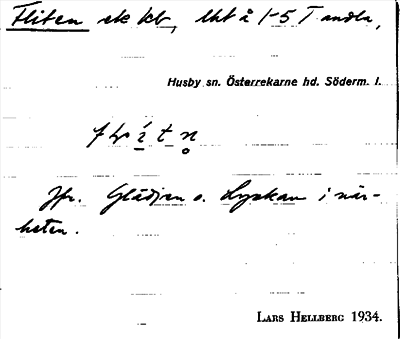 Fliten ek kt, lht å 1-5 Tandla,
Husby sn. Österrekarne hd. Söderm. l.
Jfr. Glädjen o. Lyckan i när-
heten.
LARS HELLBERG 1934.